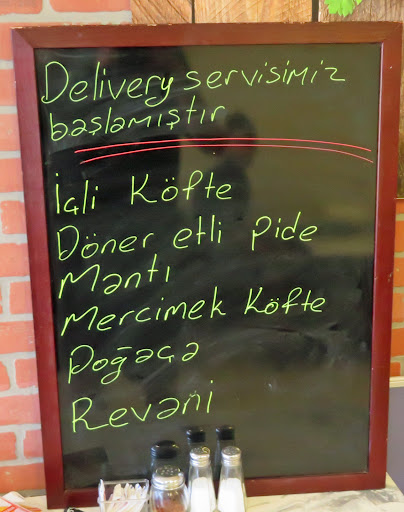 Delivery servisimiz
başlamıştır
İçli Köfte
Döner etli pide
Mantı
Mercimek Köfte
Poğaça
Revani